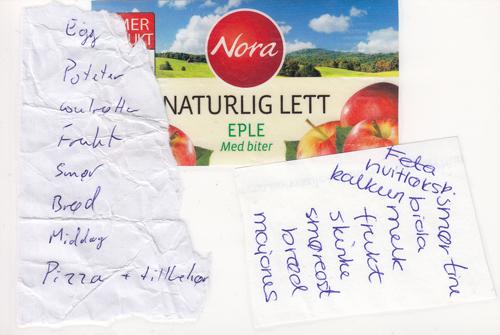 Egg
Poteter
Gulrøtter
Frukt
Smør
Brød
Middag
Pizza + tillbehør
MER
UKT
Nora
NATURLIG LETT
EPLE
Med biter
Feta
hvitløksb.
kalkun
smør
bida
melk
frukt
skinke
smøreost
brød
majones